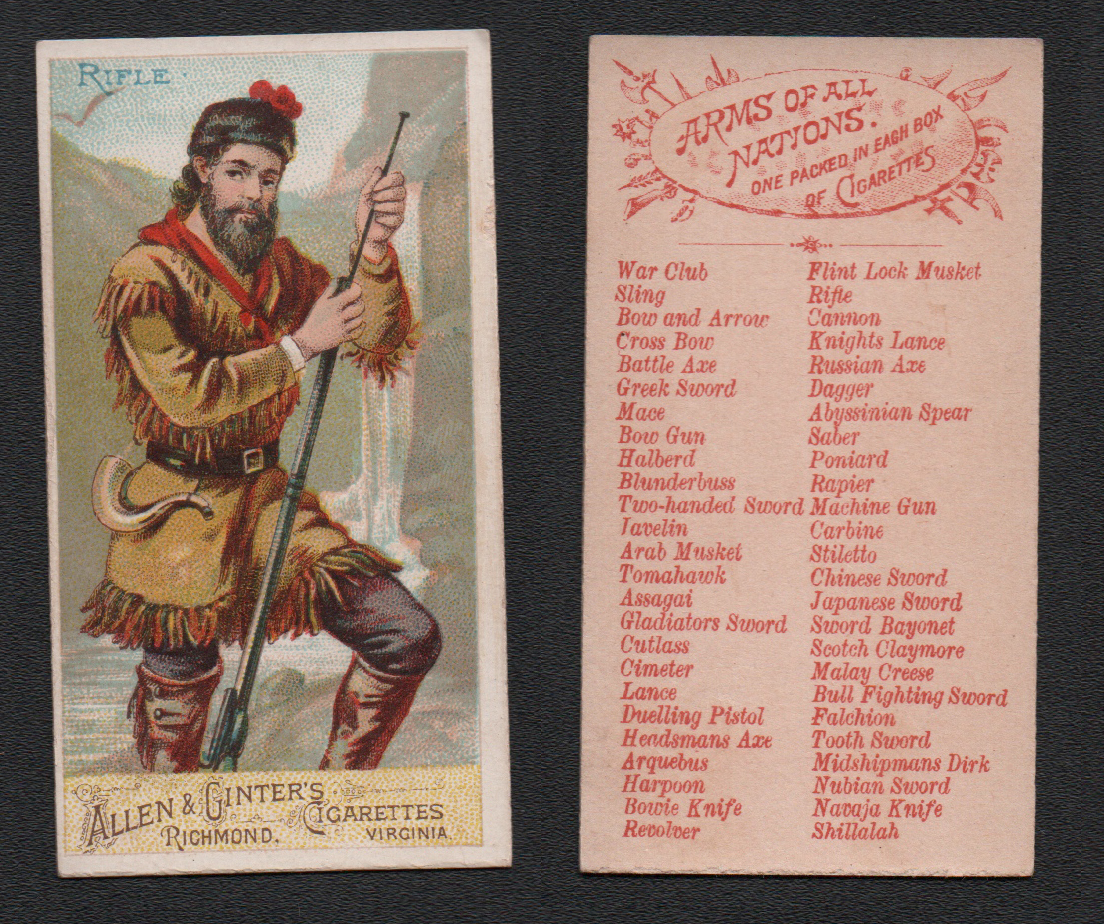 RIFLE
ALLEN & GINTER'S
CIGARETTES
RICHMOND, VIRGINIA.
ARMS OF ALL
NATIONS.
ONE PACKED IN EACH BOX
OF CIGARETTES
War Club
Sling
Bow and Arrow
Cross Bow
Battle Axe
Greek Sword
Mace
Bow Gun
Halberd
Blunderbuss
Two-handed Sword
Javelin
Arab Musket
Tomahawk
Assagai
Gladiators Sword
Cutlass
Cimeter
Lance
Duelling Pistol
Headsmans Axe
Arquebus
Harpoon
Bowie Knife
Revolver
Flint Lock Musket
Rifle
Cannon
Knights Lance
Russian Axe
Dagger
Abyssinian Spear
Saber
Poniard
Rapier
Machine Gun
Carbine
Stiletto
Chinese Sword
Japanese Sword
Sword Bayonet
Scotch Claymore
Malay Creese
Bull Fighting Sword
Falchion
Tooth Sword
Midshipmans Dirk
Nubian Sword
Navaja Knife
Shillalah